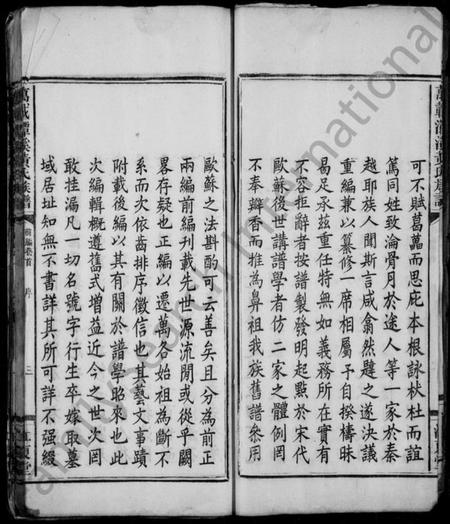 可不賦葛藟而思庇本根詠杕杜而誼
篤同姓致淪骨月於途人等一家於秦
越耶族人聞斯言咸翕然韙之遂決議
重編兼以纂修一席相屬予自揆檮昧
曷足承茲重任特無如義務所在實有
不容拒辭者按譜製發明起點於宋代
歐蘇後世講譜學者仿二家之體例罔
不奉瓣香而推為鼻祖我族舊譜叅用
萬載潭溪黃氏族譜
前編卷首
序
三
歐蘇之法斟酌可云善矣且分為前正
兩編前編刊載先世源流閒或從乎闕
畧存疑也正編以遷萬各始祖為斷不
系而次依齒排序徵信也其藝文事蹟
附載後編以其有關於譜學昭來也此
次編輯概遵舊式增益近今之世次罔
敢挂漏凡一切名號字行生卒嫁取墓
域居址知無不書詳其所可詳不强綴
amilySearch International